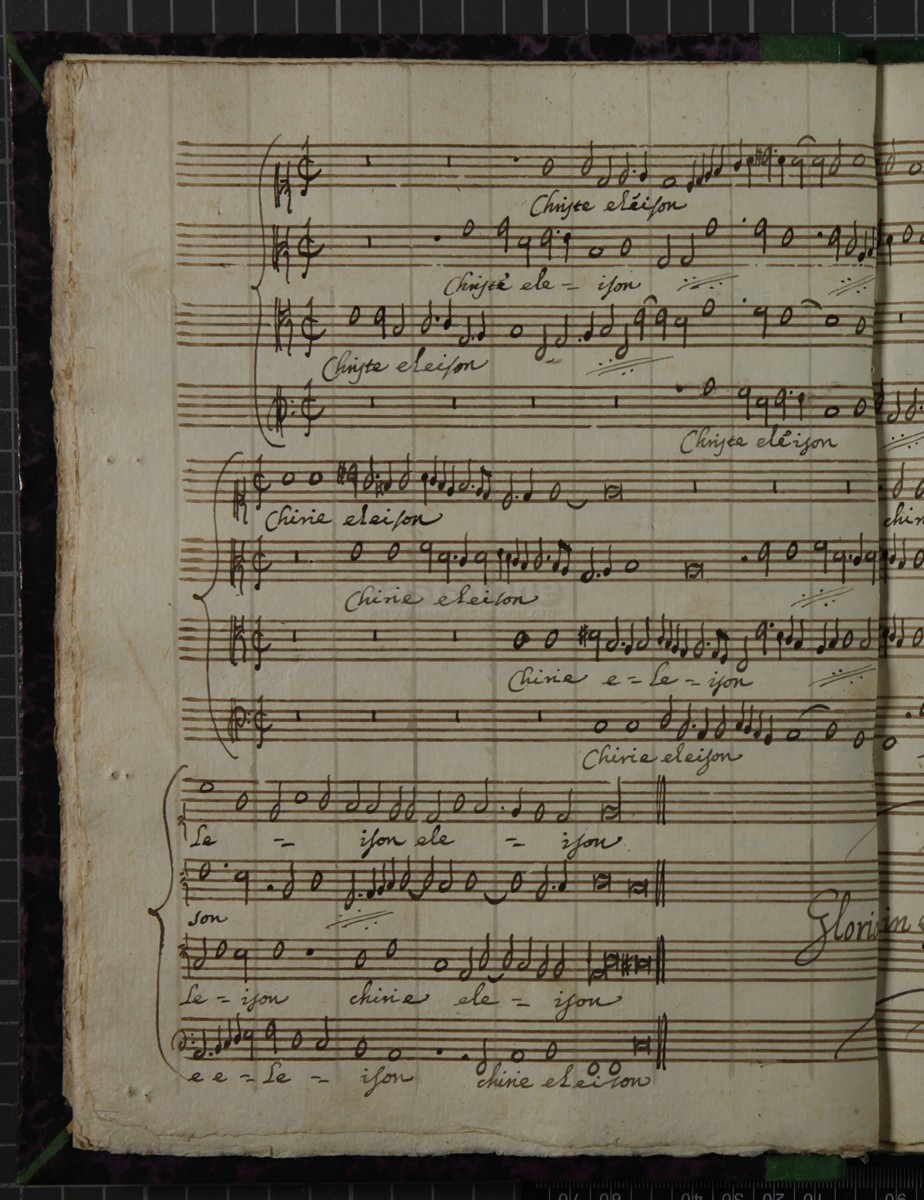 Christe eléison
Christe ele = ison
Christe eleison
Christe eléison
Chirie eleison
chir
Chirie eleison
Chirie e = le = ison
Chirie eleison
Le = ison ele = ison
son
Gloria in e
Le = ison chirie ele = ison
e e = le = ison chirie eleison